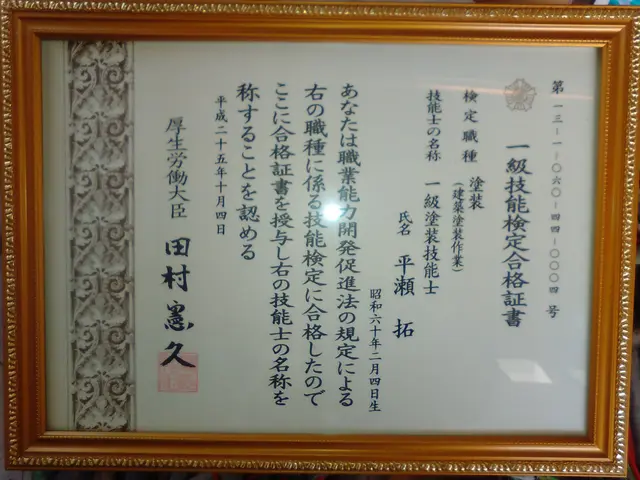 第一三-一-〇六〇-四四-〇〇〇四号
一級技能検定合格証書
検定職種 塗装
(建築塗装作業)
技能士の名称 一級塗装技能士
氏名 平瀬 拓
昭和六十年二月四日生
あなたは職業能力開発促進法の規定による
右の職種に係る技能検定に合格したので
ここに合格証書を授与し右の技能士の名称を
称することを認める
平成二十五年十月四日
厚生労働大臣 田村憲久